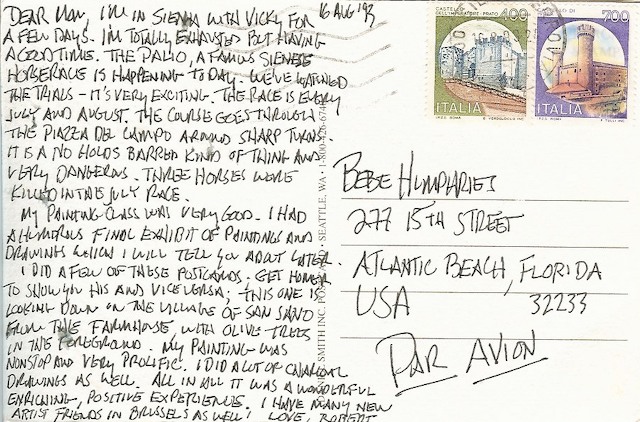 16 AUG '93
DEAR MOM, I'M IN SIENA WITH VICKY FOR
A FEW DAYS. I'M TOTALLY EXHAUSTED BUT HAVING
A GOOD TIME. THE PALIO, A FAMOUS SIENESE
HORSERACE IS HAPPENING TODAY. WE'VE WATCHED
THE TRIALS - IT'S VERY EXCITING. THE RACE IS EVERY
JULY AND AUGUST. THE COURSE GOES THROUGH
THE PIAZZA DEL CAMPO AROUND SHARP TURNS.
IT IS A NO HOLDS BARRED KIND OF THING AND
VERY DANGEROUS. THREE HORSES WERE
KILLED IN THE JULY RACE.
MY PAINTING CLASS WAS VERY GOOD. I HAD
A HUMOROUS FINAL EXHIBIT OF PAINTINGS AND
DRAWINGS WHICH I WILL TELL YOU ABOUT LATER.
I DID A FEW OF THESE POSTCARDS. GET HOMER
TO SHOW YOU HIS AND VICE VERSA; THIS ONE IS
LOOKING DOWN ON THE VILLAGE OF SAN SANO
FROM THE FARMHOUSE, WITH OLIVE TREES
IN THE FOREGROUND. MY PAINTING WAS
NONSTOP AND VERY PROLIFIC. I DID A LOT OF CHARCOAL
DRAWINGS AS WELL. ALL IN ALL IT WAS A WONDERFUL
ENRICHING, POSITIVE EXPERIENCE. I HAVE MANY NEW
ARTIST FRIENDS IN BRUSSELS AS WELL! LOVE, ROBERT
SMITH INC. SEATTLE, WA • 1-800-426-
CASTELLO
DELL'IMPERATORE PRATO
400
ITALIA
700
ITALIA
BEBE HUMPHRIES
277 15TH STREET
ATLANTIC BEACH, FLORIDA
USA 32233
PAR AVION